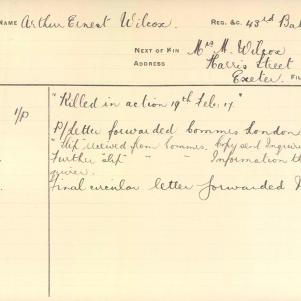 NAME Arthur Ernest Wilcox. REG. &C. 43rd Bat
NEXT OF KIN Mrs M. Wilcox
ADDRESS Harris Street
Exeter. FI
1/P "Killed in action 19th Feb. 17"
P/Letter forwarded Commes London
"Slip received from Commes. Copy sent Inquiri
Further slip " " Information th
given.
Final circular letter forwarded